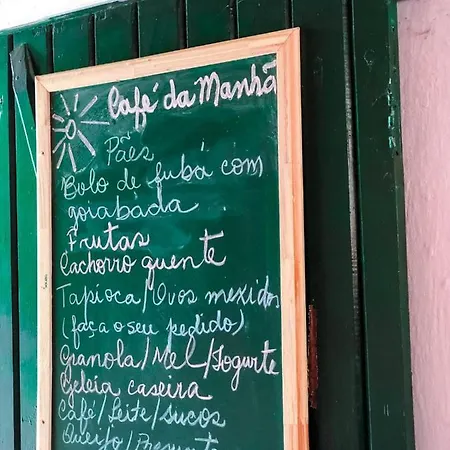 Café da Manhã
Pães
Bolo de fubá com
goiabada
Frutas
Cachorro quente
Tapioca/Ovos mexidos
(faça o seu pedido)
Granola/Mel/Iogurte
Geleia caseira
Café/Leite/Sucos
Queijo/Presunto